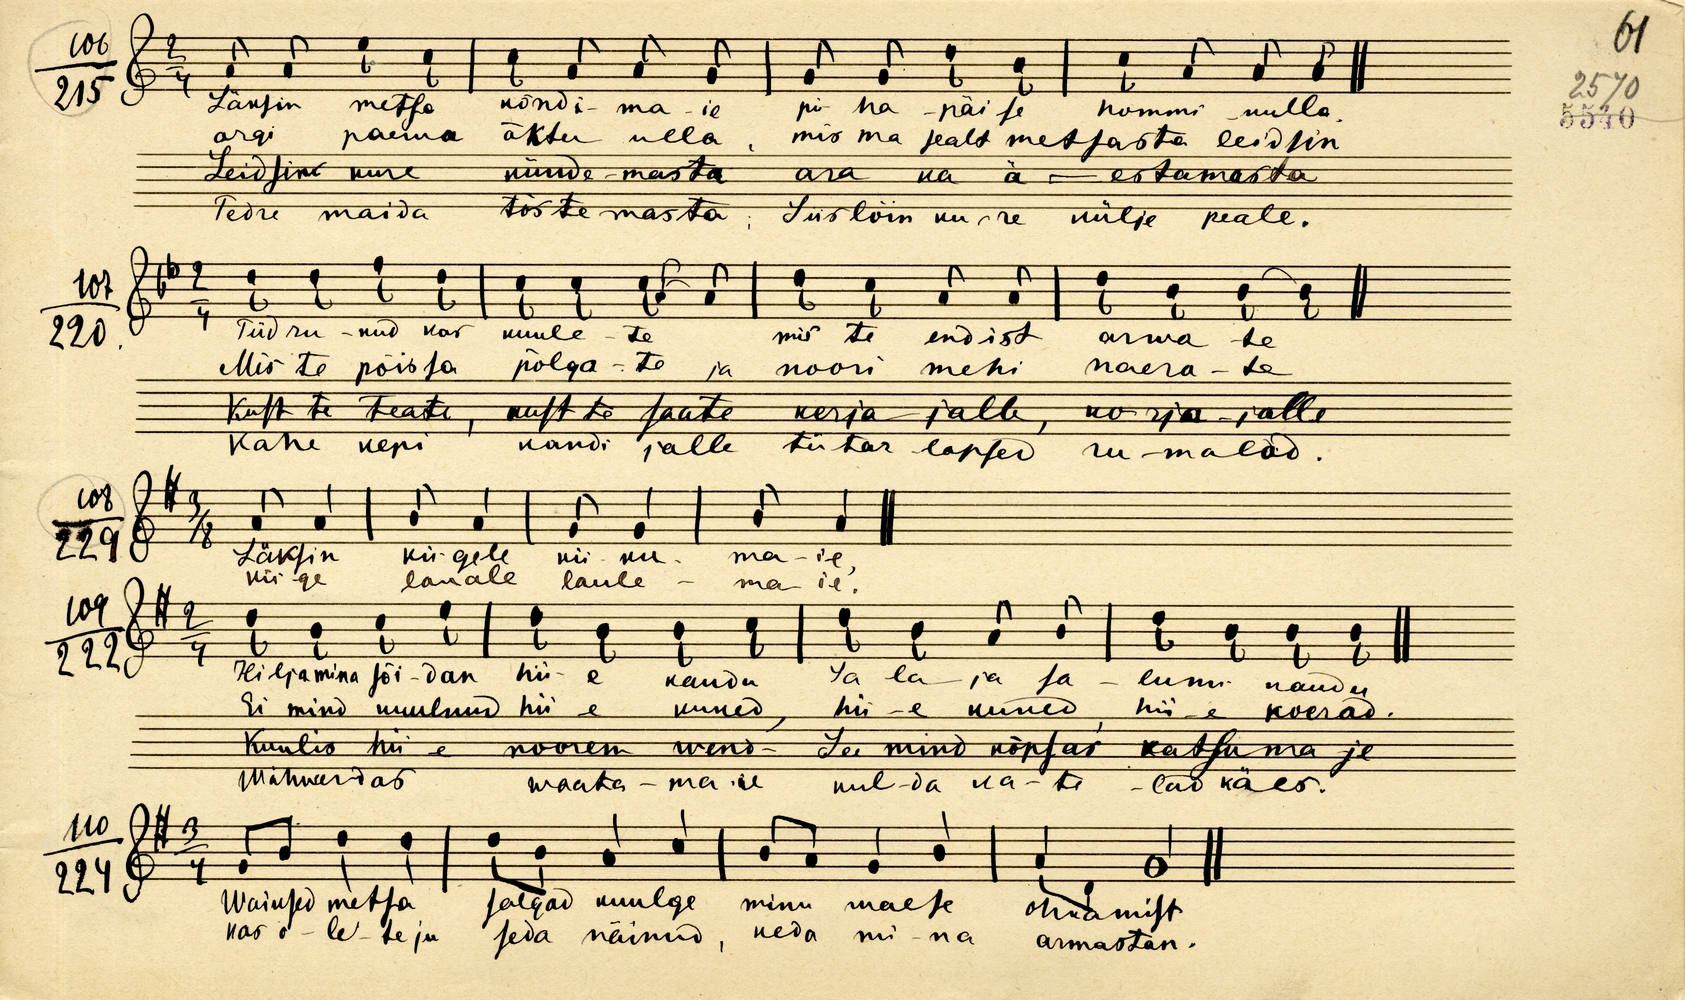 61
2570
5540
106
215
2/4
Läksin metsa kõndi-ma-ie pü-ha-päise hommi-kulla.
argi paewa äktu ulla, mis ma sealt metsasta leidsin
Leidsin kure künde-masta ara ka ä-estamasta
Tedre maida tõstemasta, Siis lõin ku-re külje peale.
107
220.
2/4
Tüdru-kud kas kuule-te mis te endist arwa-te
Mis te poissa põlga-te ja noori mehi naera-te
Kust te teate, kust te saate kerja-jalle, korja-jalle
Kahe kepi kandi jalle tütar lapsed ru-malad.
108
229
3/8
Läksin kii-gele kii-ku-ma-ie,
kii-ge lauale laule-ma-ie.
109
222
2/4
Hilja mina sõi-dan hii-e kaudu Sa la-ja sa-lumi kaudu
Ei mind kuulnud hii-e kuned, hii-e kuned, hii-e koerad.
Kuulis hii-e noorem wend- See mind kõpsas katsuma je
waata-ma-ie kul-da ka-te-lad käes.
110
224
3/4
Waiksed metsa salgad kuulge minu walse ohkamist
kas o-le-te ju seda näinud, keda mi-na armastan.